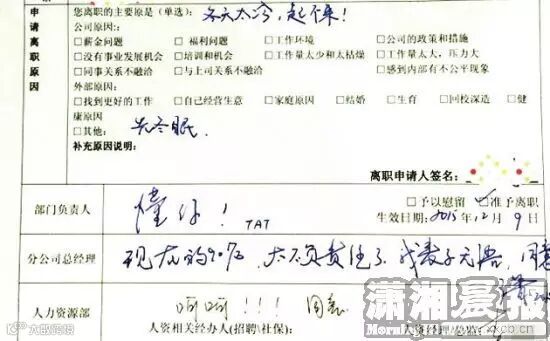 申请离职原因
您离职的主要原是(单选): 冬天太冷,起不来!
公司原因:
□薪金问题 □福利问题 □工作环境 □公司的政策和措施
□没有事业发展机会 □培训和机会 □工作量太少和太枯燥 □工作量太大,压力大
□同事关系不融洽 □与上司关系不融洽 □感到内部有不公平现象
外部原因:
□找到更好的工作 □自己经营生意 □家庭原因 □结婚 □生育 □回校深造 □健
康原因
□其他: 去冬眠.
补充原因说明:
离职申请人签名:
部门负责人 懂你! TAT
□予以慰留 □准予离职
生效日期: 2015年12月9日
分公司总经理 现在的90后,太不负责任了.我表示无语,同意
人力资源部 呵呵!!! 同意
人资相关经办人(招聘\社保):
人资经理/总监:
潇湘晨报
xxcb.cn
大皖周塘